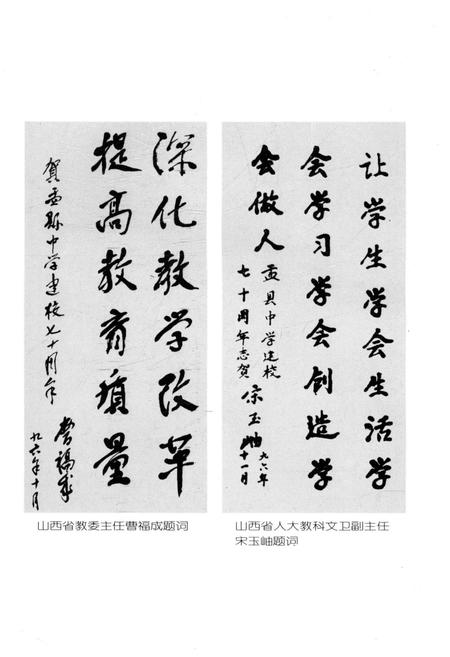 深化教学改革
提高教育质量
贺盂县中学建校七十周年
曹福成
九六年十月
山西省教委主任曹福成题词
让学生学会生活学
会学习学会创造学
会做人
盂县中学建校
七十周年志贺
宋玉岫
九六年
十一月
山西省人大教科文卫副主任
宋玉岫题词